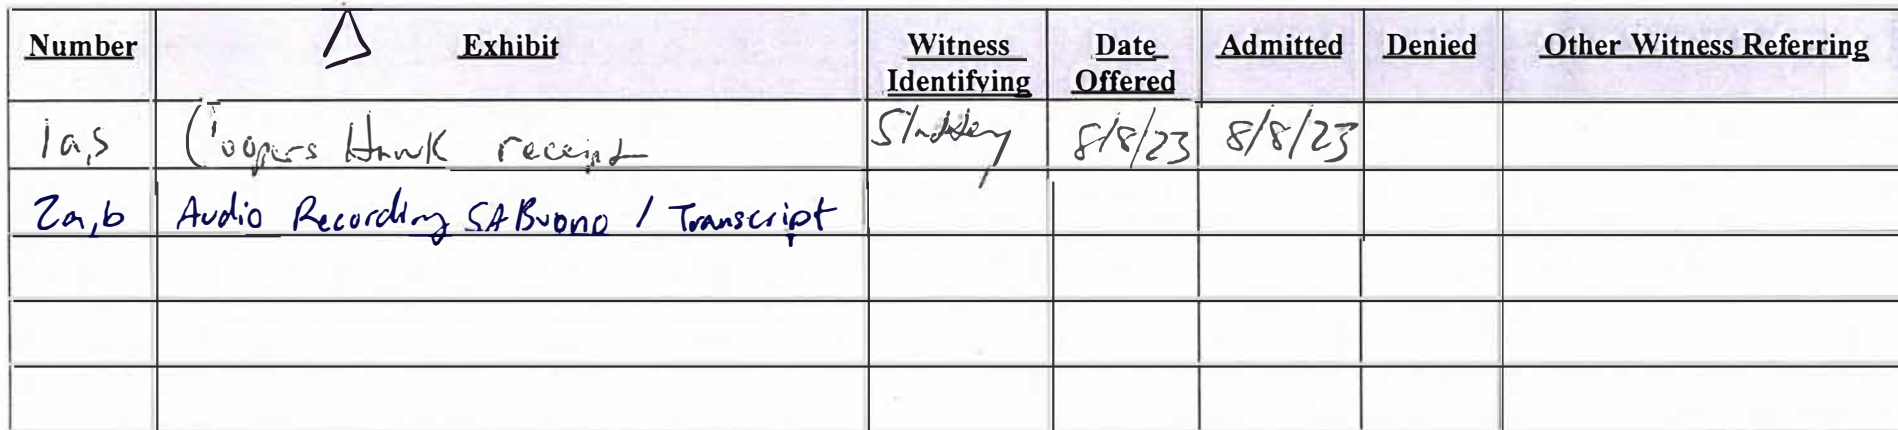 Number Δ Exhibit Witness Identifying Date Offered Admitted Denied Other Witness Referring
Coopers Hawk receipt 8/8/23 8/8/23
2a,b Audio Recording SA Buono / Transcript